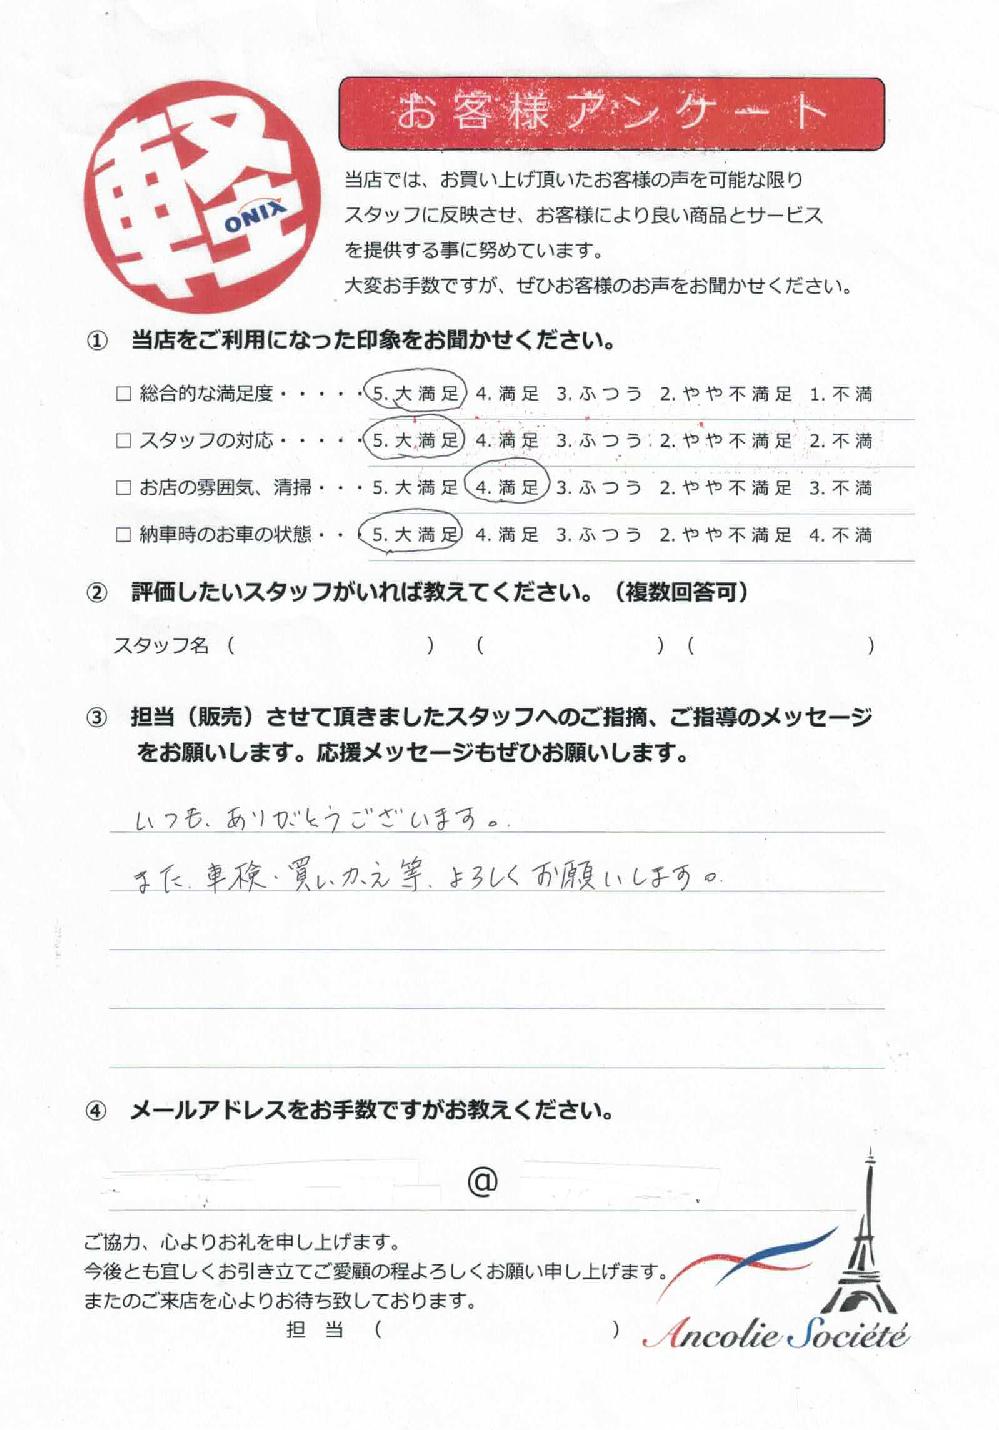 軽
ONIX
お客様アンケート
当店では、お買い上げ頂いたお客様の声を可能な限り
スタッフに反映させ、お客様により良い商品とサービス
を提供する事に努めています。
大変お手数ですが、ぜひお客様のお声をお聞かせください。
① 当店をご利用になった印象をお聞かせください。
□ 総合的な満足度・・・・・5. 大満足 4. 満足 3. ふつう 2. やや不満足 1. 不満
□ スタッフの対応・・・・・5. 大満足 4. 満足 3. ふつう 2. やや不満足 2. 不満
□ お店の雰囲気、清掃・・・5. 大満足 4. 満足 3. ふつう 2. やや不満足 3. 不満
□ 納車時のお車の状態・・・5. 大満足 4. 満足 3. ふつう 2. やや不満足 4. 不満
② 評価したいスタッフがいれば教えてください。（複数回答可）
スタッフ名（ ）（ ）（ ）
③ 担当（販売）させて頂きましたスタッフへのご指摘、ご指導のメッセージ
をお願いします。応援メッセージもぜひお願いします。
いつも、ありがとうございます。
また、車検・買いかえ等、よろしくお願いします。
④ メールアドレスをお手数ですがお教えください。
@
ご協力、心よりお礼を申し上げます。
今後とも宜しくお引き立てご愛顧の程よろしくお願い申し上げます。
またのご来店を心よりお待ち致しております。
担 当 （ ）
Ancolie Société